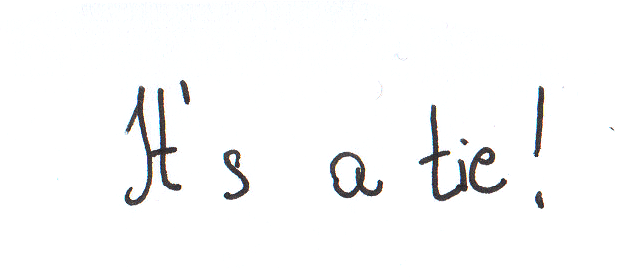 It's a tie!